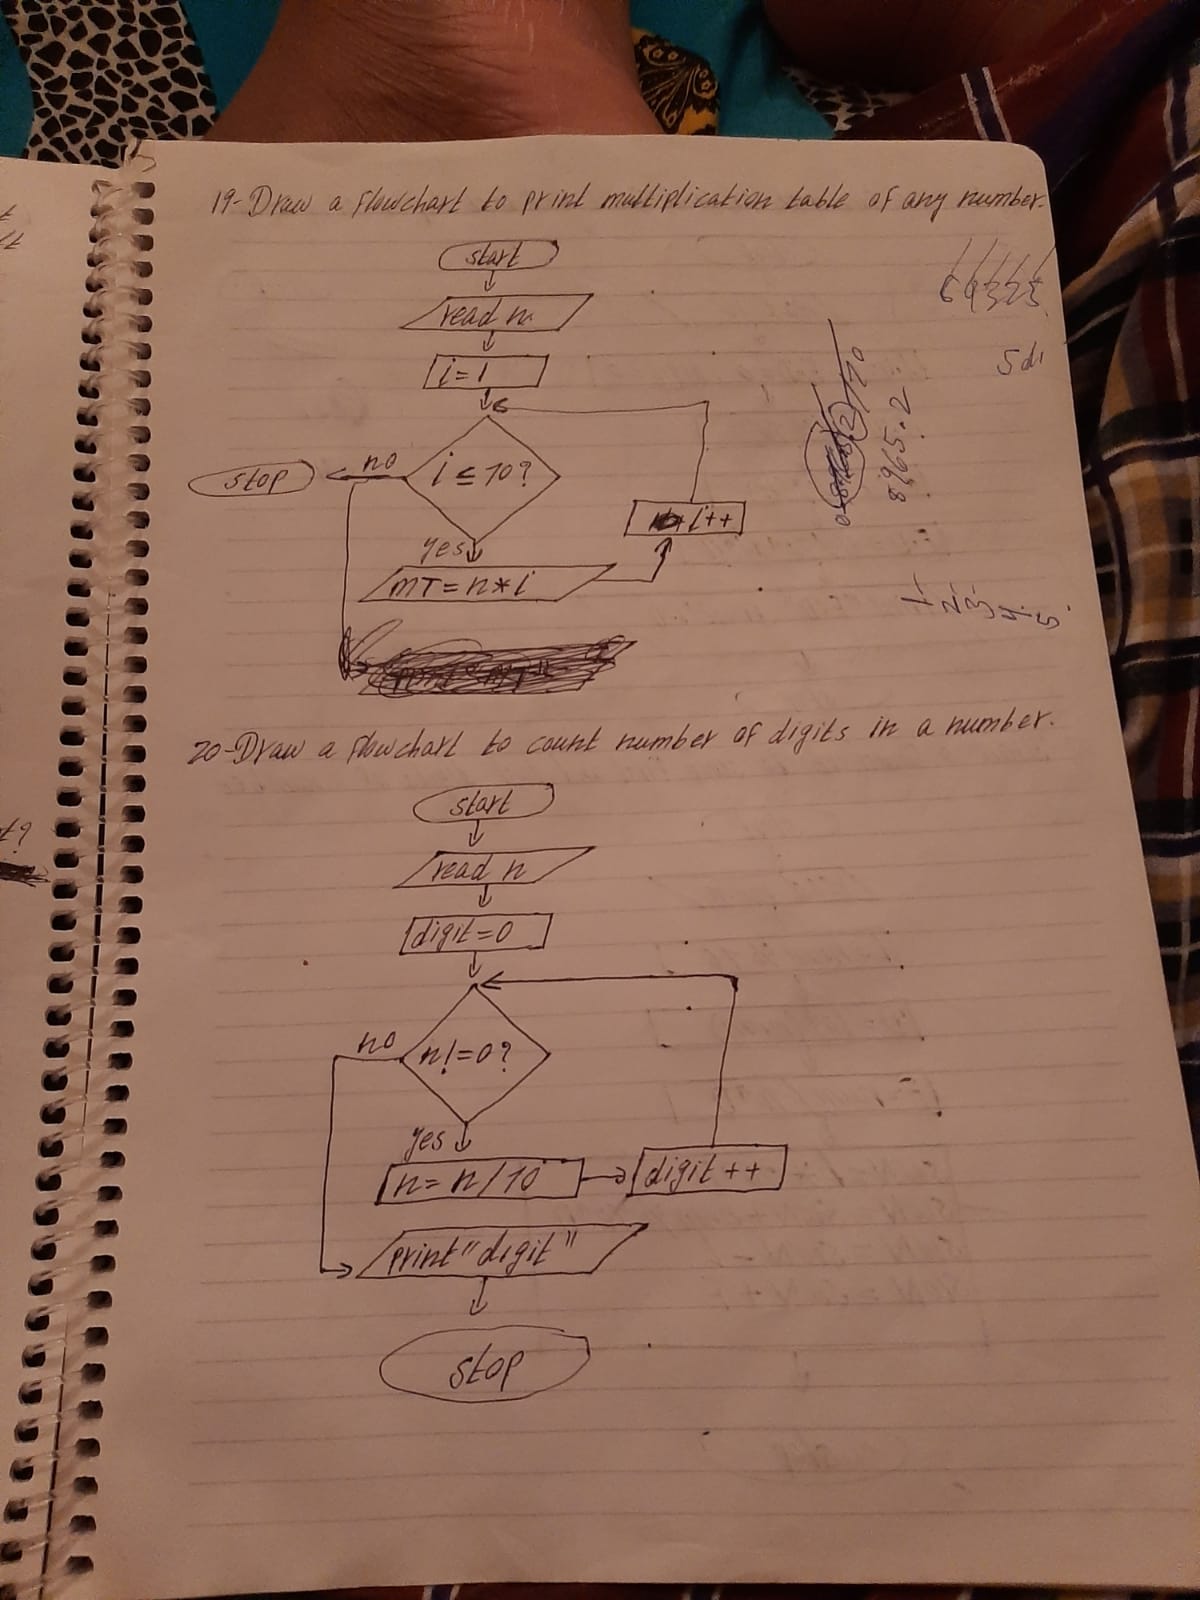 19- Draw a flowchart to print multiplication table of any number.
start
read n
i=1
i ≤ 10?
no
stop
yes
MT = n * i
i++
5 di
8965.2
1. 2. 3. 4. 5.
20- Draw a flowchart to count number of digits in a number.
start
read n
digit=0
n!=0?
no
yes
n= n/10
digit ++
print "digit"
stop